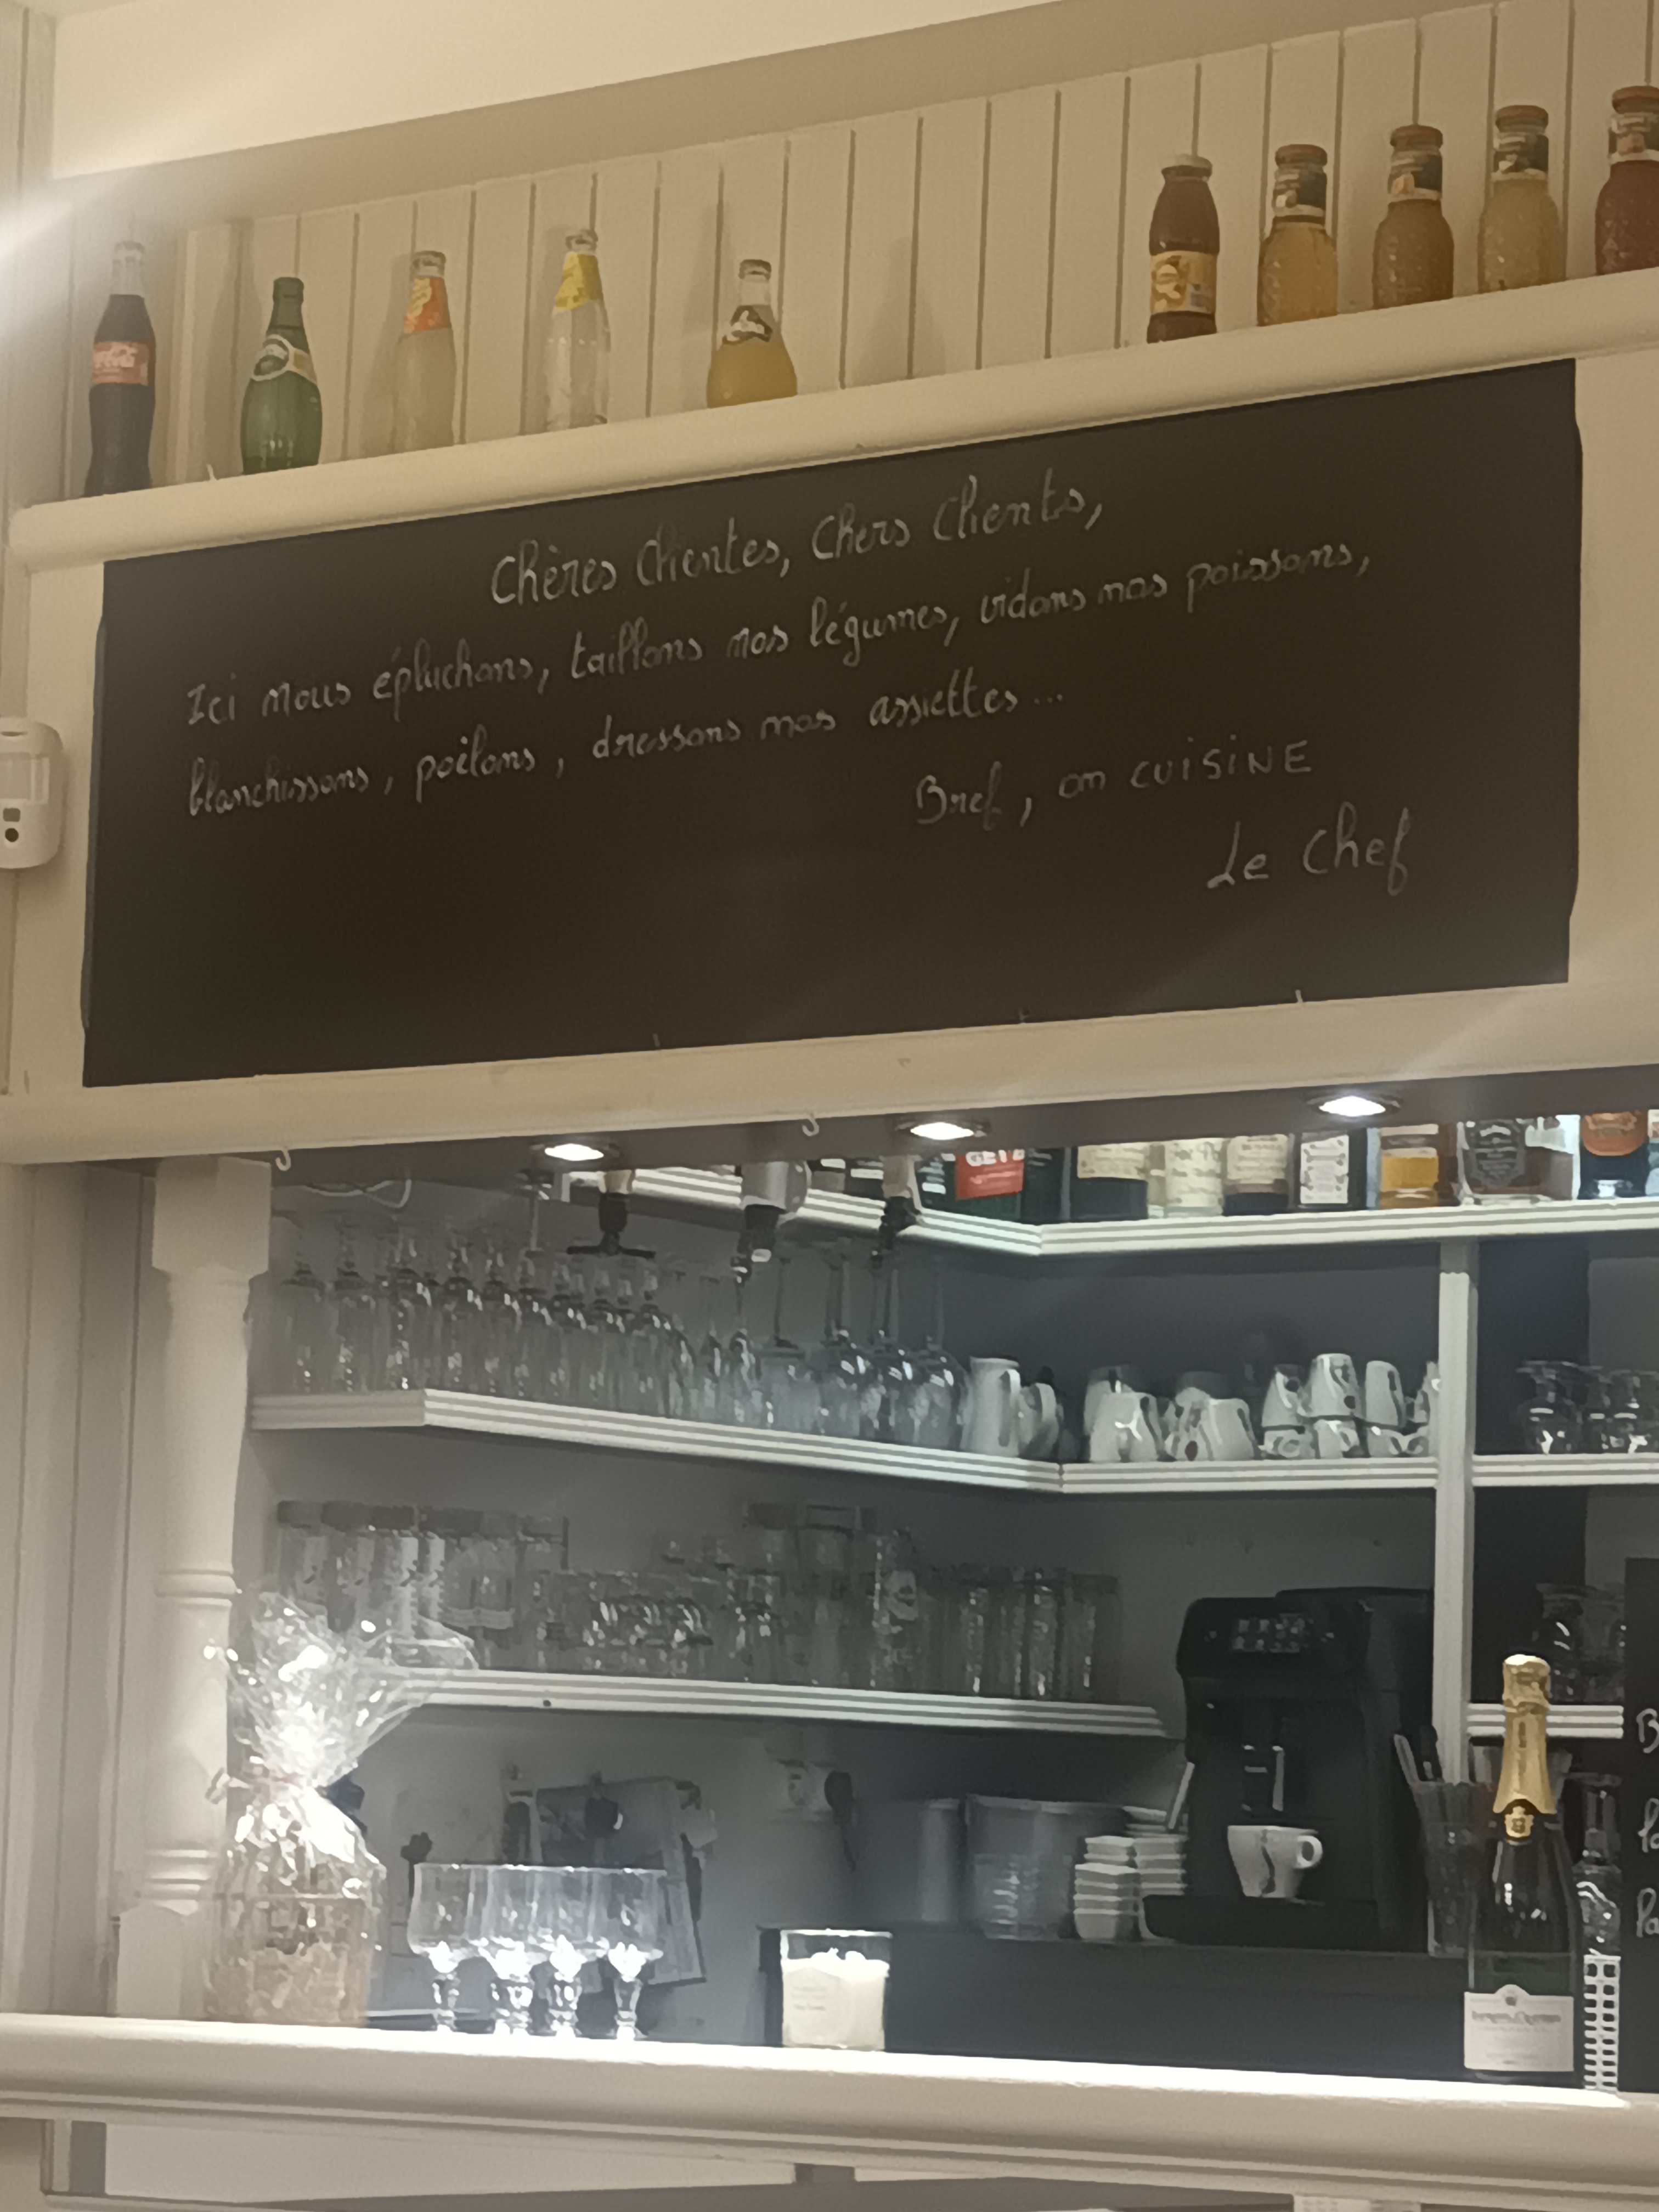 Chères Clientes, Chers Clients,
Ici nous épluchons, taillons nos légumes, vidons nos poissons,
blanchissons, poêlons, dressons nos assiettes...
Bref, on CUISINE
Le Chef
GET